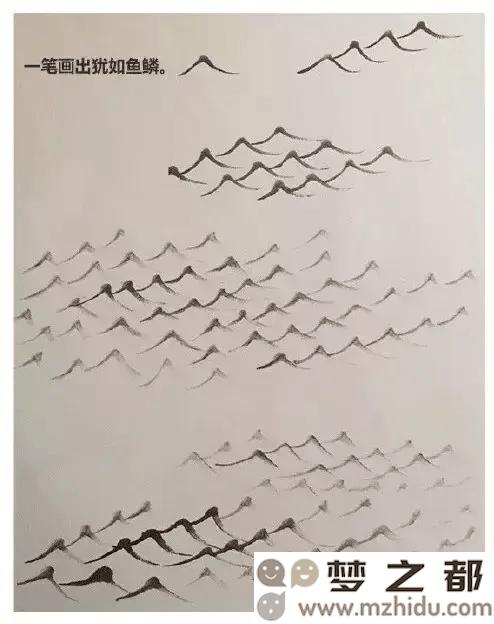 一笔画出犹如鱼鳞。
梦之都
www.mzhidu.com